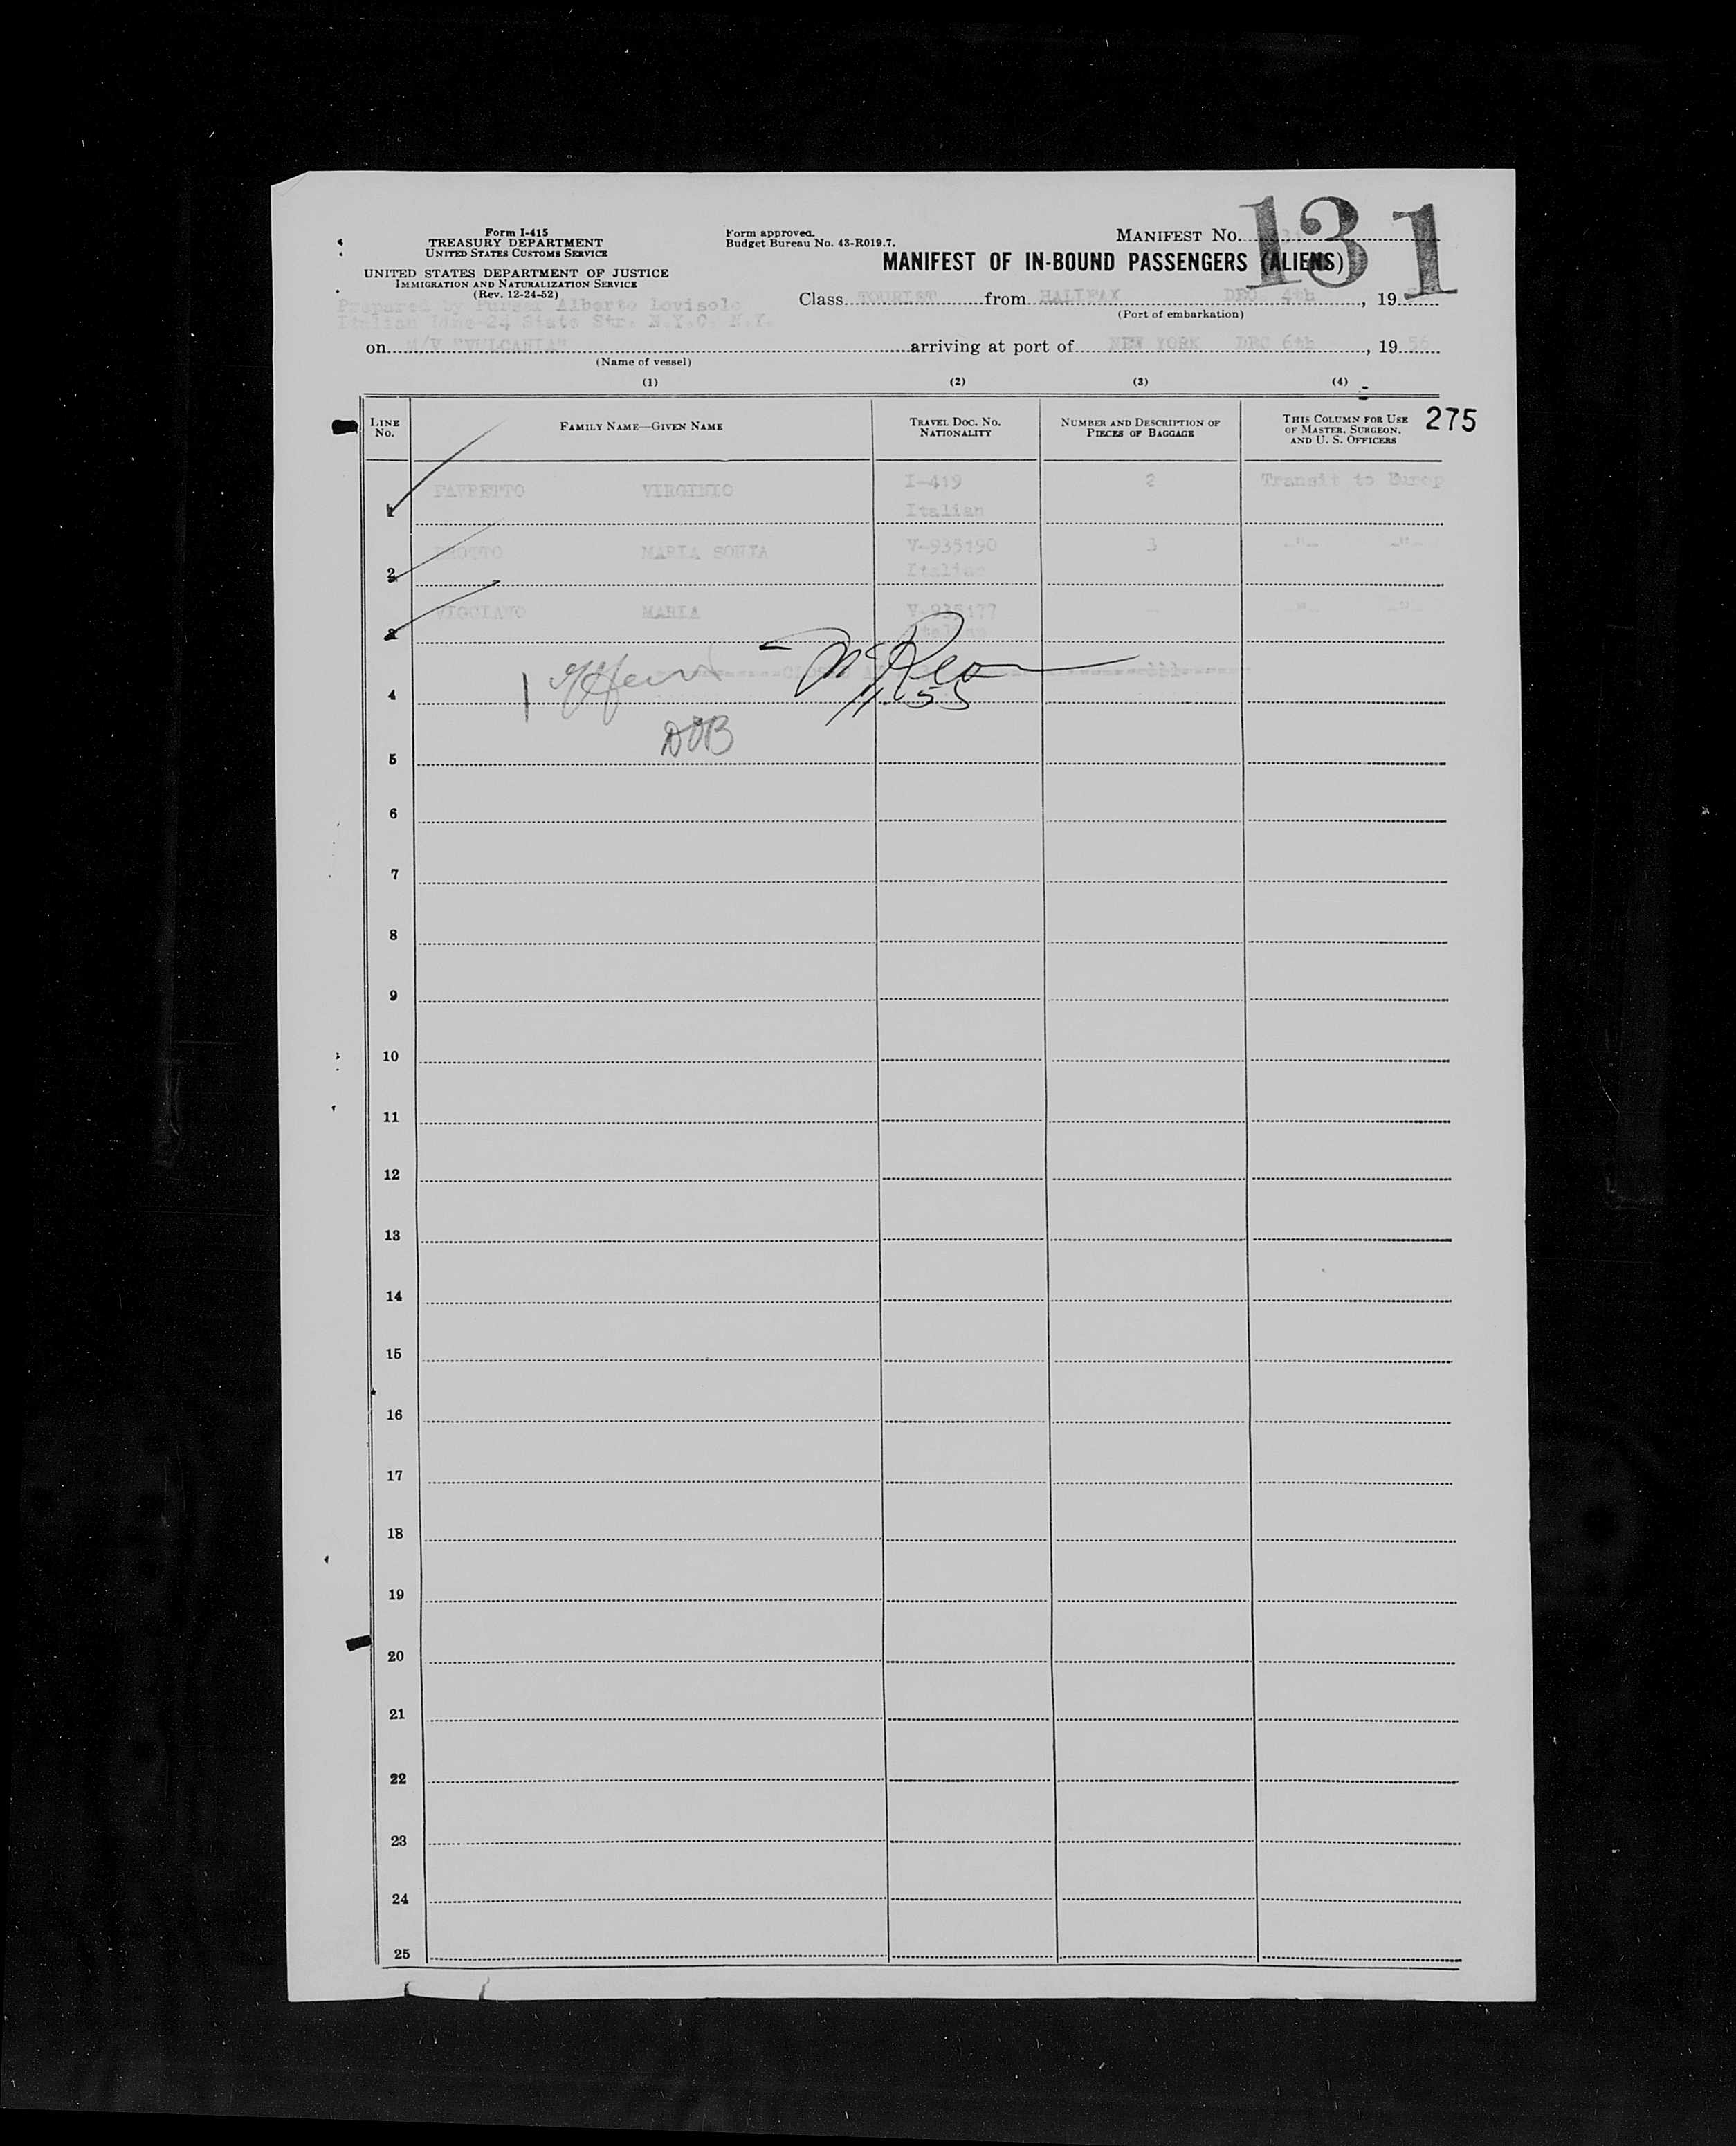 Form I-415
TREASURY DEPARTMENT
UNITED STATES CUSTOMS SERVICE
UNITED STATES DEPARTMENT OF JUSTICE
IMMIGRATION AND NATURALIZATION SERVICE
(Rev. 12-24-52)
Form approved.
Budget Bureau No. 43-R019.7.
MANIFEST NO. 131
MANIFEST OF IN-BOUND PASSENGERS (ALIENS)
Prepared by Purser Alberto Lovisolo
Italian Line-24 State Str. N.Y.C. N.Y.
Class TOURIST from HALIFAX DEC. 4th, 19
(Port of embarkation)
on M/V "VULCANIA" arriving at port of NEW YORK DEC 6th, 1956
(Name of vessel)
(1) (2) (3) (4)
LINE No. FAMILY NAME—GIVEN NAME TRAVEL DOC. NO. NATIONALITY NUMBER AND DESCRIPTION OF PIECES OF BAGGAGE THIS COLUMN FOR USE OF MASTER, SURGEON, AND U. S. OFFICERS
275
1 FAVRETTO VIRGINIO I-419 Italian 2 Transit to Europ
2 MARIA SONIA V-935190 Italian 3 -"- -"-
3 VIGGIATO MARIA V-935177 Italian -"- -"-
4
1155
DOB
5
6
7
8
9
10
11
12
13
14
15
16
17
18
19
20
21
22
23
24
25